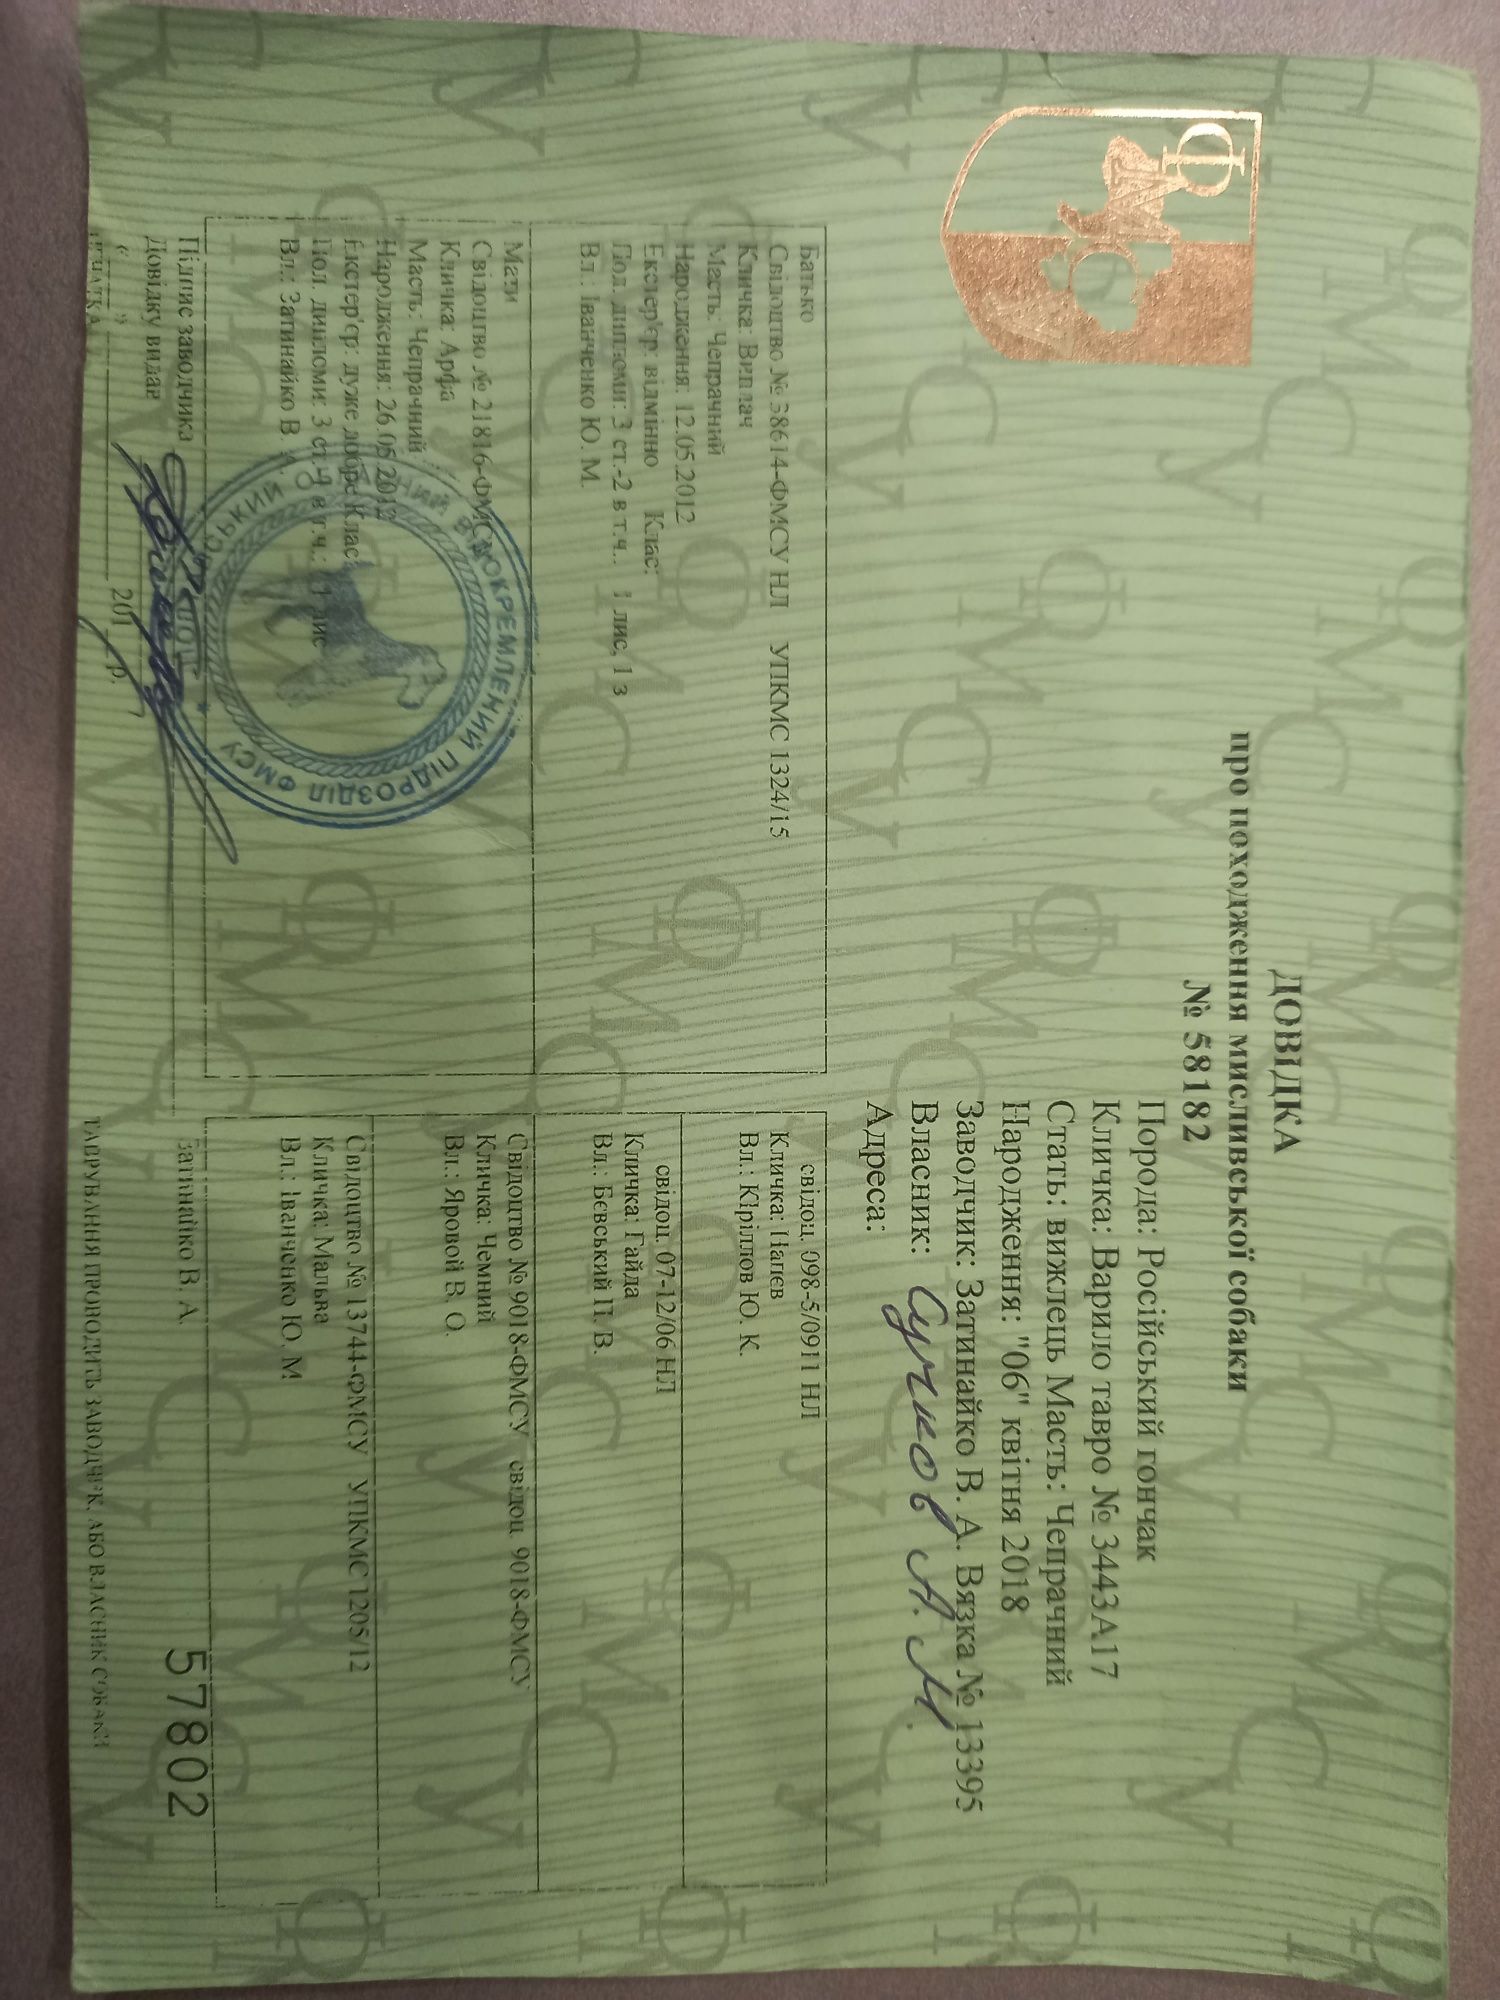 ДОВІДКА
про походження мисливської собаки
№ 58182
Порода: Російський гончак
Кличка: Варило тавро № 3443А17
Стать: вижлець Масть: Чепрачний
Народження: "06" квітня 2018
Заводчик: Затинайко В. А. Вязка № 13395
Власник: Сучков А. М.
Адреса:
Батько
Свідоцтво № 38614-ФМСУ НЛ УПКМС 1324/15
Кличка:
Масть: Чепрачний
Народження: 12.05.2012
Екстер'єр: відмінно Клас:
Пол. дипломи: 3 ст.-2 в т.ч.. 1 лис, 1 з
Вл.: Іванченко Ю. М.
Мати
Свідоцтво № 21816-ФМСУ
Кличка: Арфа
Масть: Чепрачний
Народження: 26.05.2012
Екстер'єр: дуже добре Клас:
Пол. дипломи: 3 ст.-1 в т.ч.: 1 лис
Вл.: Затинайко В. А.
свідоц. 098-5/0911 НЛ
Кличка:
Вл.: Кіріллов Ю. К.
свідоц. 07-12/06 НЛ
Кличка: Гайда
Вл.: Бєвський П. В.
Свідоцтво № 9018-ФМСУ свідоц. 9018-ФМСУ
Кличка: Чемний
Вл.: Яровой В. О.
Свідоцтво № 13744-ФМСУ УПКМС 1205/12
Кличка: Мальва
Вл.: Іванченко Ю. М
Підпис заводчика Затинайко В. А.
Довідку видав
57802
" " 201 р.
ПЕЧАТКА
ТАВРУВАННЯ ПРОВОДИТЬ ЗАВОДЧИК, АБО ВЛАСНИК СОБАКИ
ВІДОКРЕМЛЕНИЙ ПІДРОЗДІЛ ФМСУ